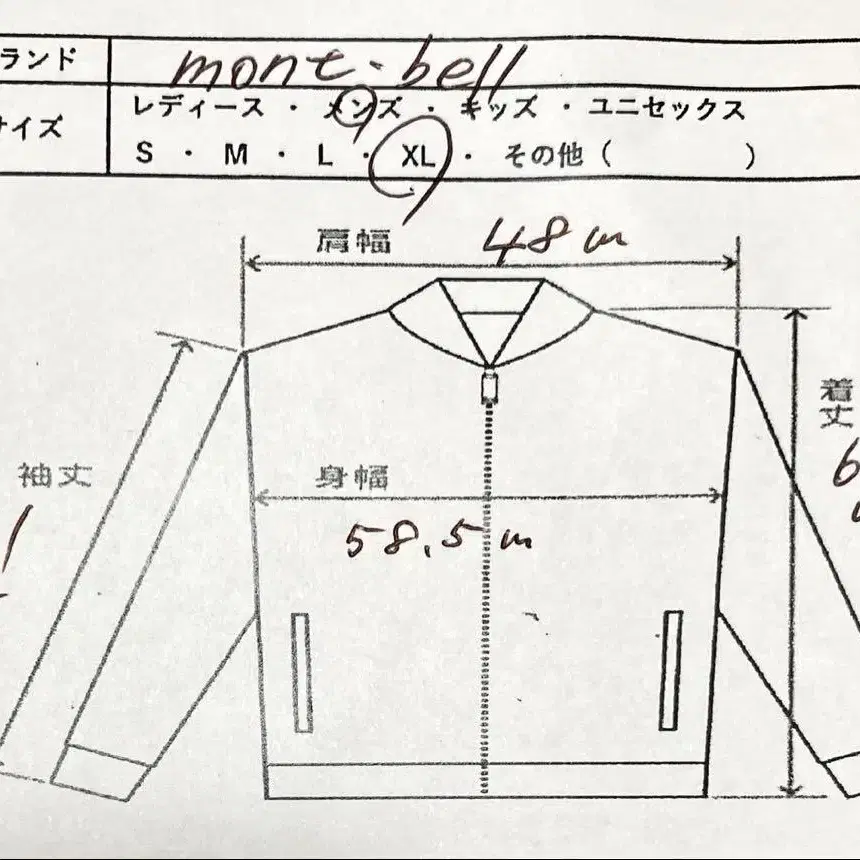 ランド mont-bell
サイズ レディース ・ メンズ ・ キッズ ・ ユニセックス
S ・ M ・ L ・ XL ・ その他 ( )
肩幅 48 cm
着丈
袖丈
身幅
58.5 cm